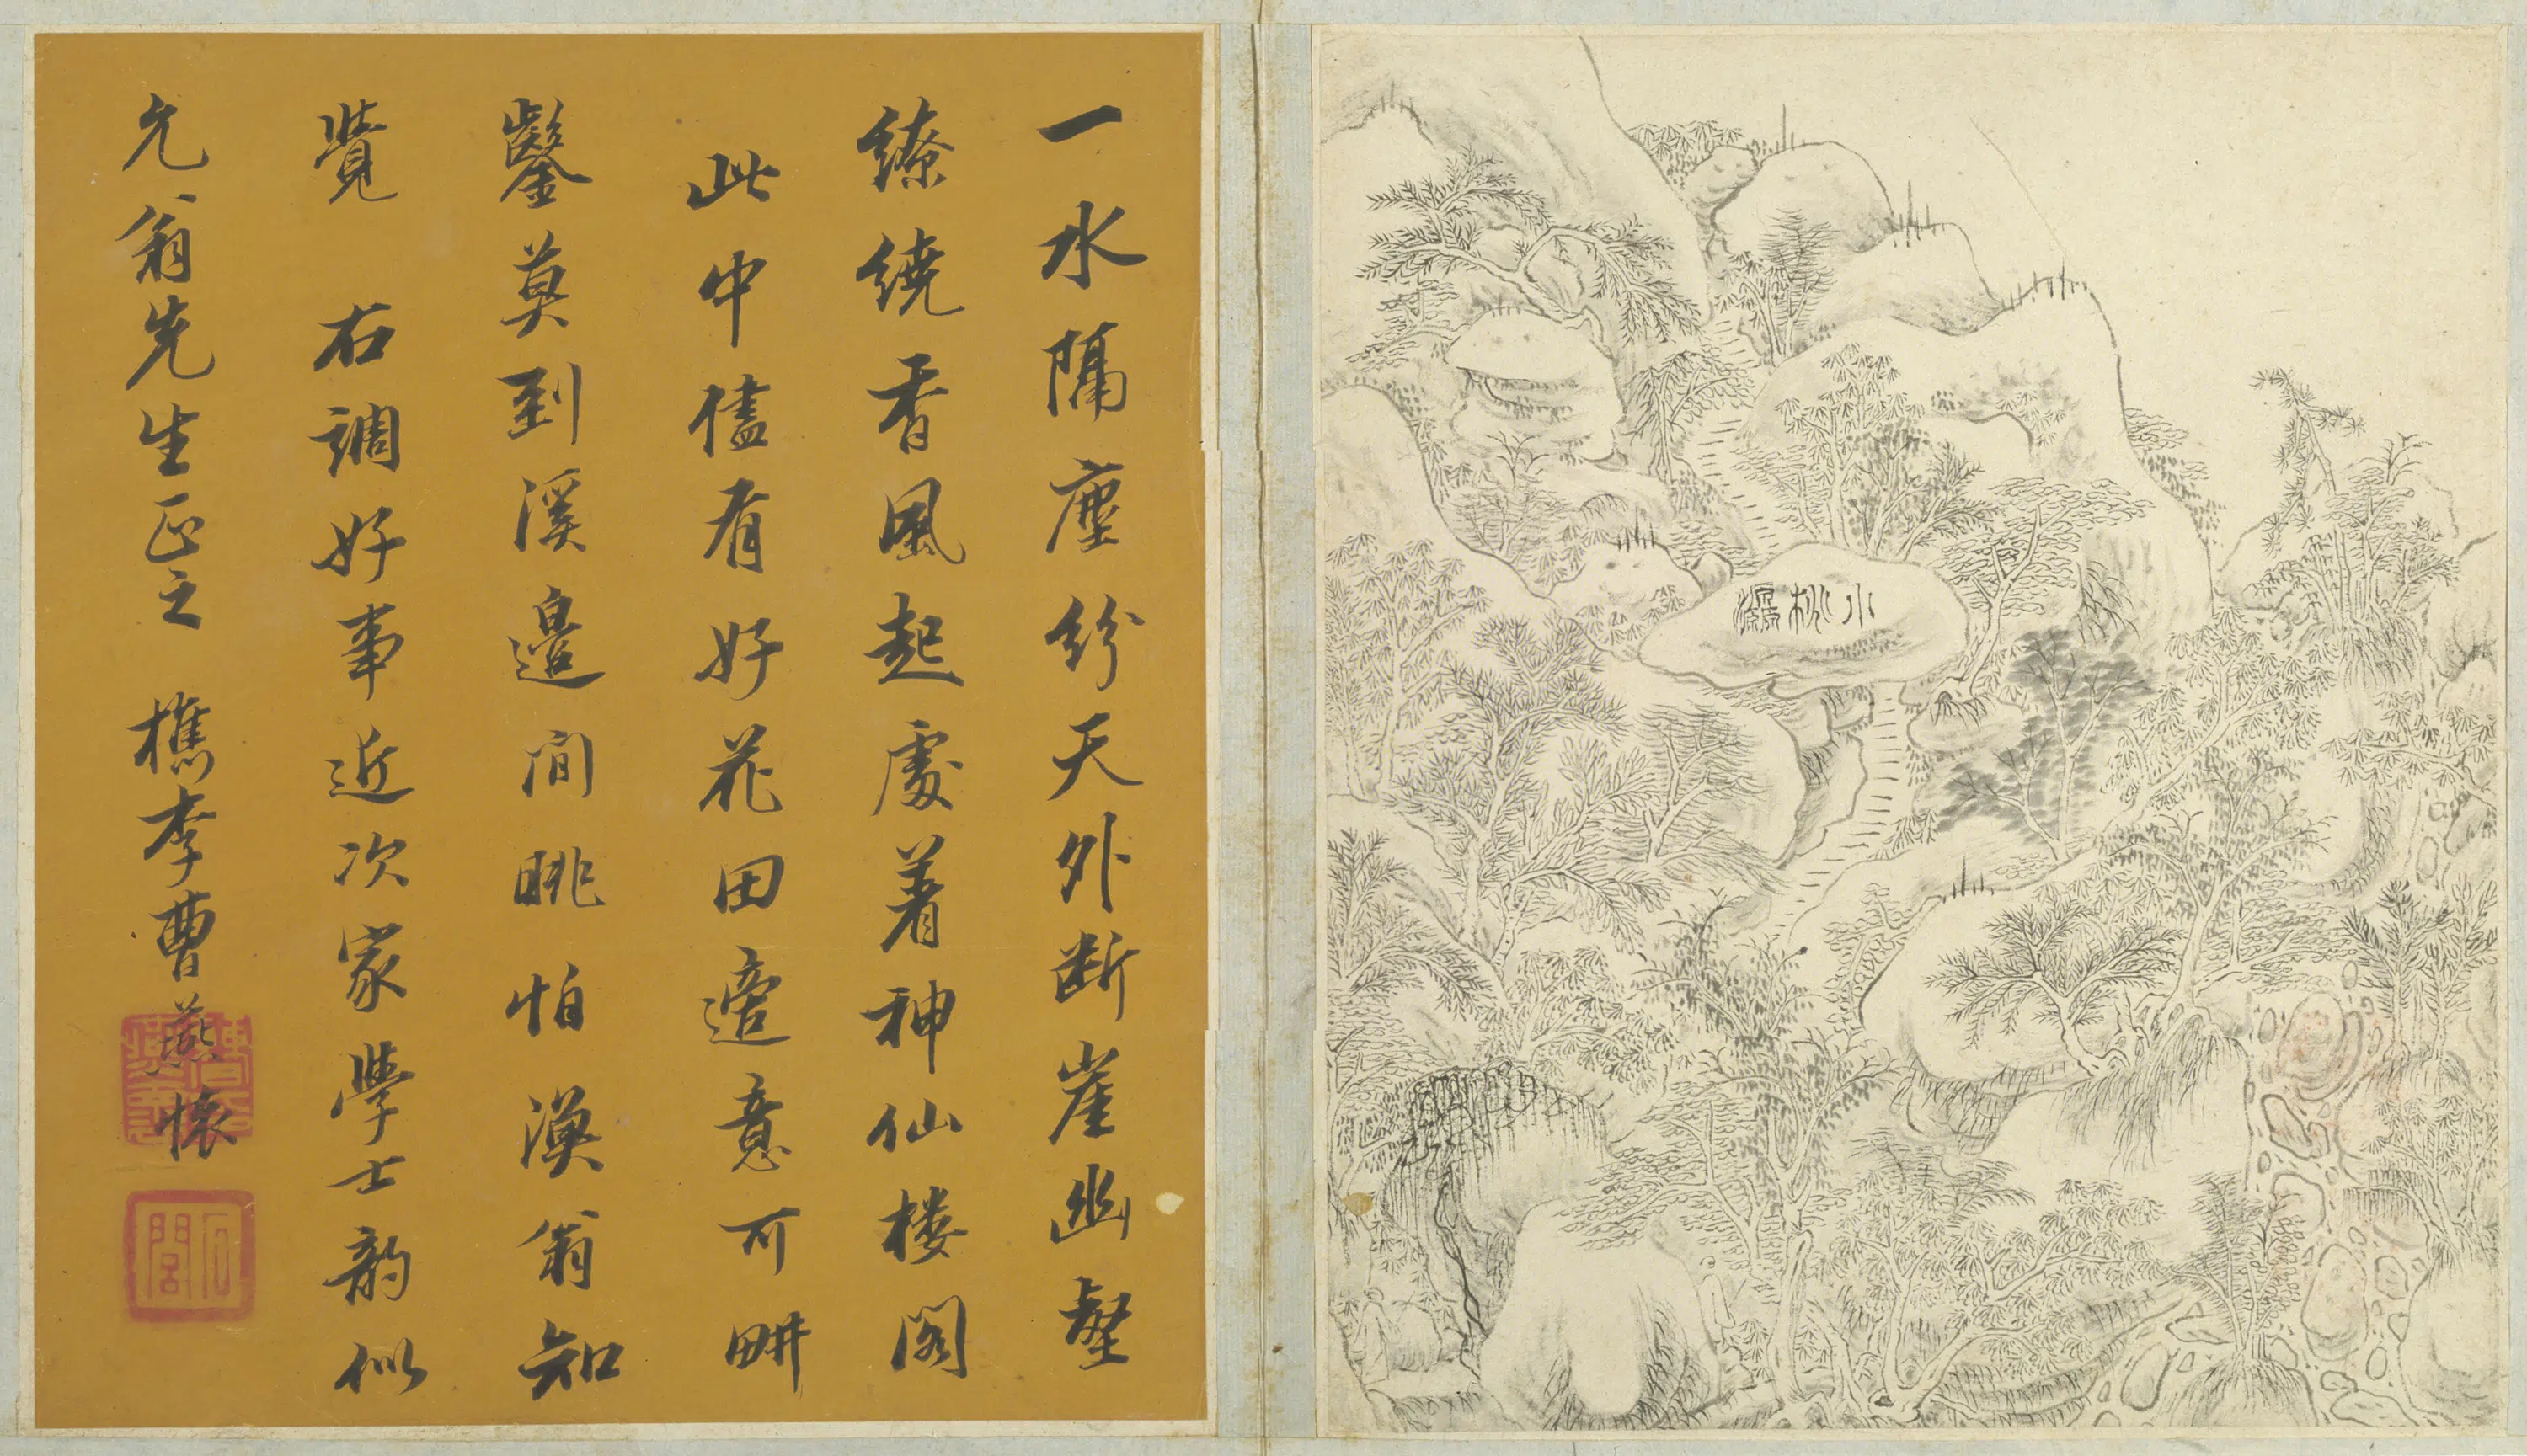 小桃源
一水隔塵紛天外断崖幽壑
繚繞香風起處着神仙楼閣
此中儘有好花田適意可畊
鑿莫到溪邊閒眺怕漁翁知
覺 右調好事近次家學士韵似
允翁先生正之 檇李曹燕懷
石閭